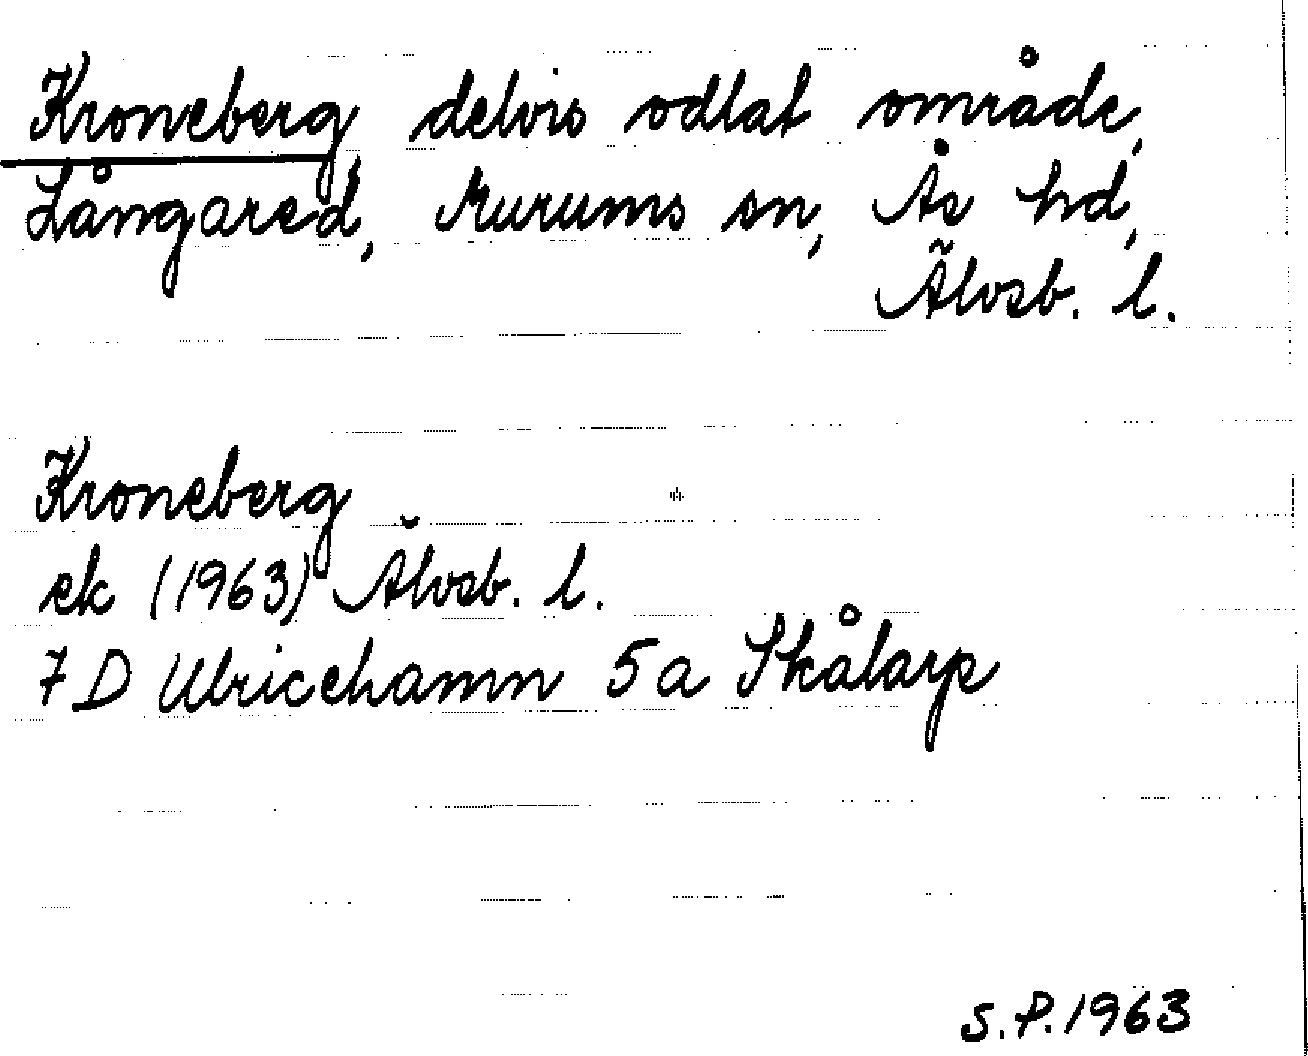 Kroneberg, delvis odlat område,
Långared, Murums sn, Ås hd,
Älvsb. l.
Kroneberg
ek (1963) Älvsb. l.
7 D Ulricehamn 5 a Skålarp
S.P. 1963